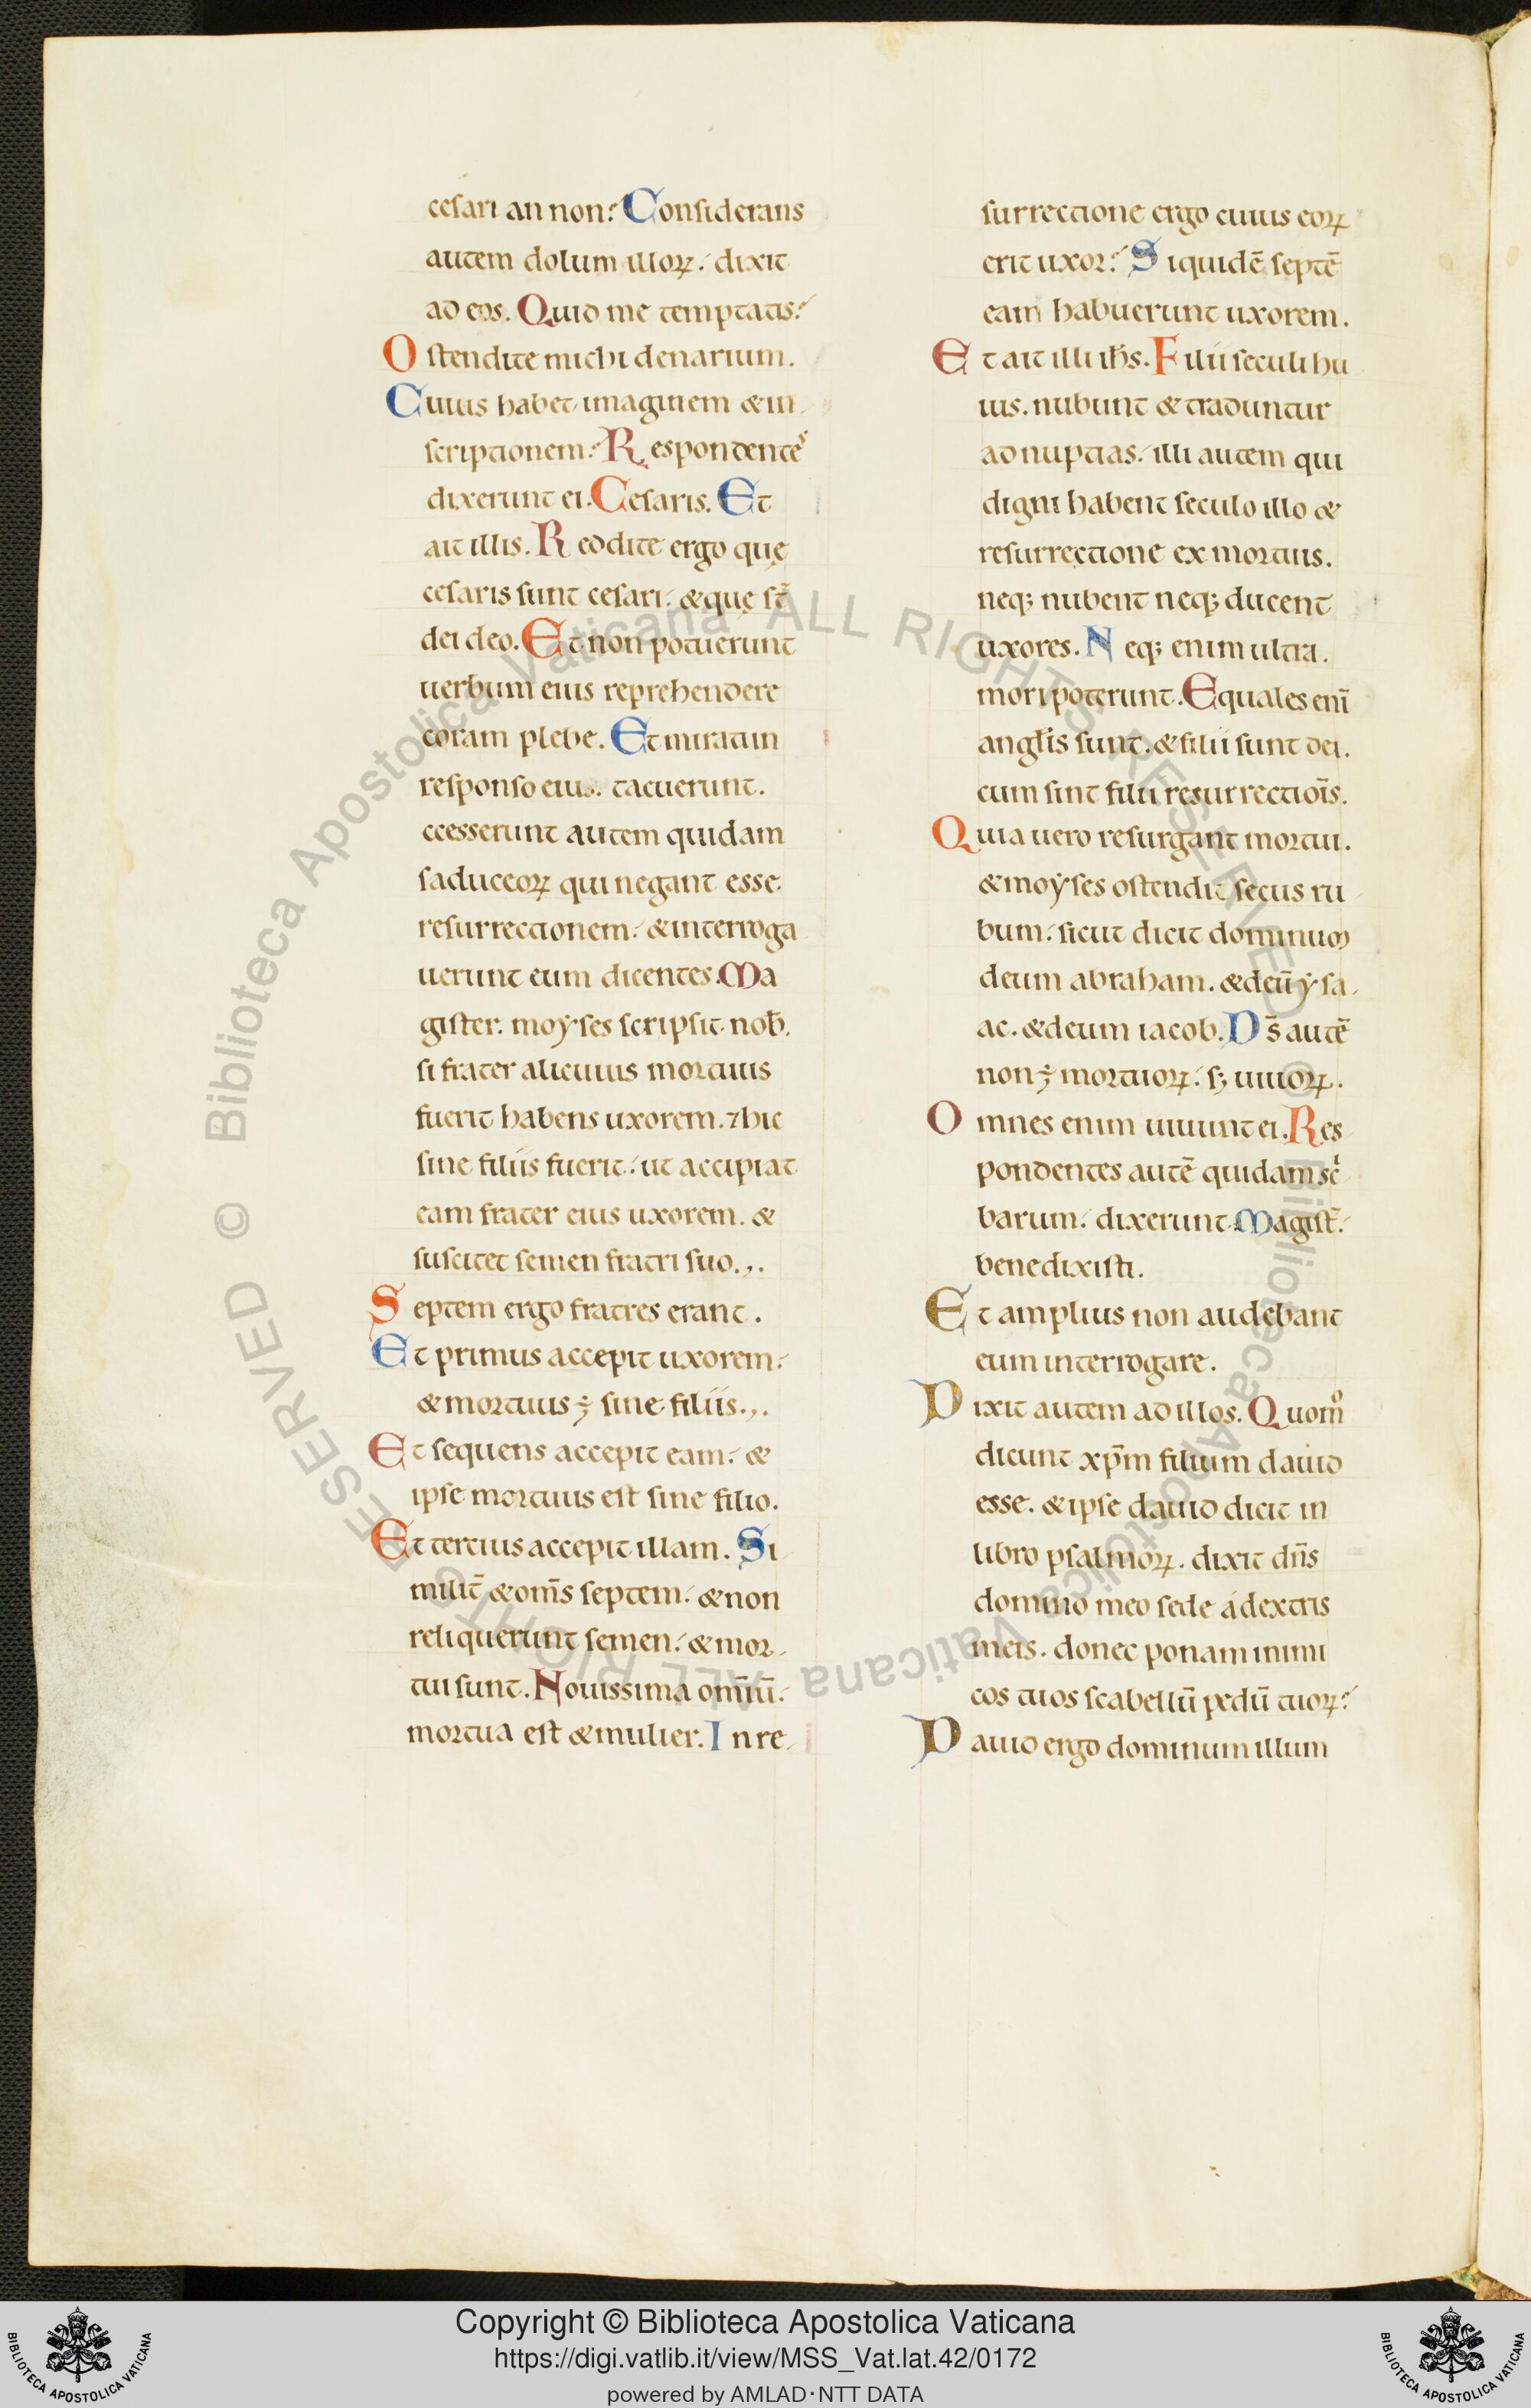 cesari an non? Considerans
autem dolum illoꝝ: dixit
ad eos. Quid me temptatis?
Ostendite michi denarium.
Cuius habet imaginem & in
scriptionem? Respondentes
dixerunt ei. Cesaris. Et
ait illis. Reddite ergo quę
cesaris sunt cesari: & quę st̄
dei deo. Et non potuerunt
uerbum eius reprehendere
coram plebe. Et mirati in
responso eius. tacuerunt.
ccesserunt autem quidam
saduceoꝝ qui negant esse
resurrectionem: & interroga
uerunt eum dicentes. Ma
gister. moẏses scripsit nob̄.
si frater alicuius mortuus
fuerit habens uxorem. ⁊ hic
sine filiis fuerit: ut accipiat
eam frater eius uxorem. &
suscitet semen fratri suo.,.
Septem ergo fratres erant.
Et primus accepit uxorem:
& mortuus ē sine filiis.,.
Et sequens accepit eam: &
ipse mortuus est sine filio.
Et tertius accepit illam. Si
milit̄ & om̄s septem: & non
reliquerunt semen: & mor
tui sunt. Nouissima omīū:
mortua est & mulier. In re
surrectione ergo cuius eoꝝ
erit uxor? Siquidē septē
eam habuerunt uxorem.
Et ait illi ih̄s. Filii seculi hu
ius. nubunt & traduntur
ad nuptias: illi autem qui
digni habent seculo illo &
resurrectione ex mortuis.
neqꝫ nubent neqꝫ ducent
uxores. Neqꝫ enim ultra.
mori poterunt. Equales enī
angl̄is sunt. & filii sunt dei.
cum sint filii resurrectiōis.
Quia uero resurgant mortui.
& moẏses ostendit secus ru
bum: sicut dicit dominum
deum abraham. & deū ẏsa
ac. & deum iacob. Ds̄ autē
non ē mortuoꝝ: sꝫ uiuoꝝ.
Omnes enim uiuunt ei. Res
pondentes autē quidam scⁱ
barum: dixerunt. Magist̄:
benedixisti.
Et amplius non audebant
eum interrogare.
Dixit autem ad illos. Quomͦ
dicunt xp̄m filium dauid
esse. & ipse dauid dicit in
libro psalmoꝝ. dixit dn̄s
domino meo sede a dextris
meis. donec ponam inimi
cos tuos scabellū pedū tuoꝝ?
Dauid ergo dominum illum
© Biblioteca Apostolica Vaticana ALL RIGHTS RESERVED © Biblioteca Apostolica Vaticana ALL RIGHTS RESERVED
BIBLIOTECA APOSTOLICA VATICANA
Copyright © Biblioteca Apostolica Vaticana
https://digi.vatlib.it/view/MSS_Vat.lat.42/0172
powered by AMLAD·NTT DATA
BIBLIOTECA APOSTOLICA VATICANA